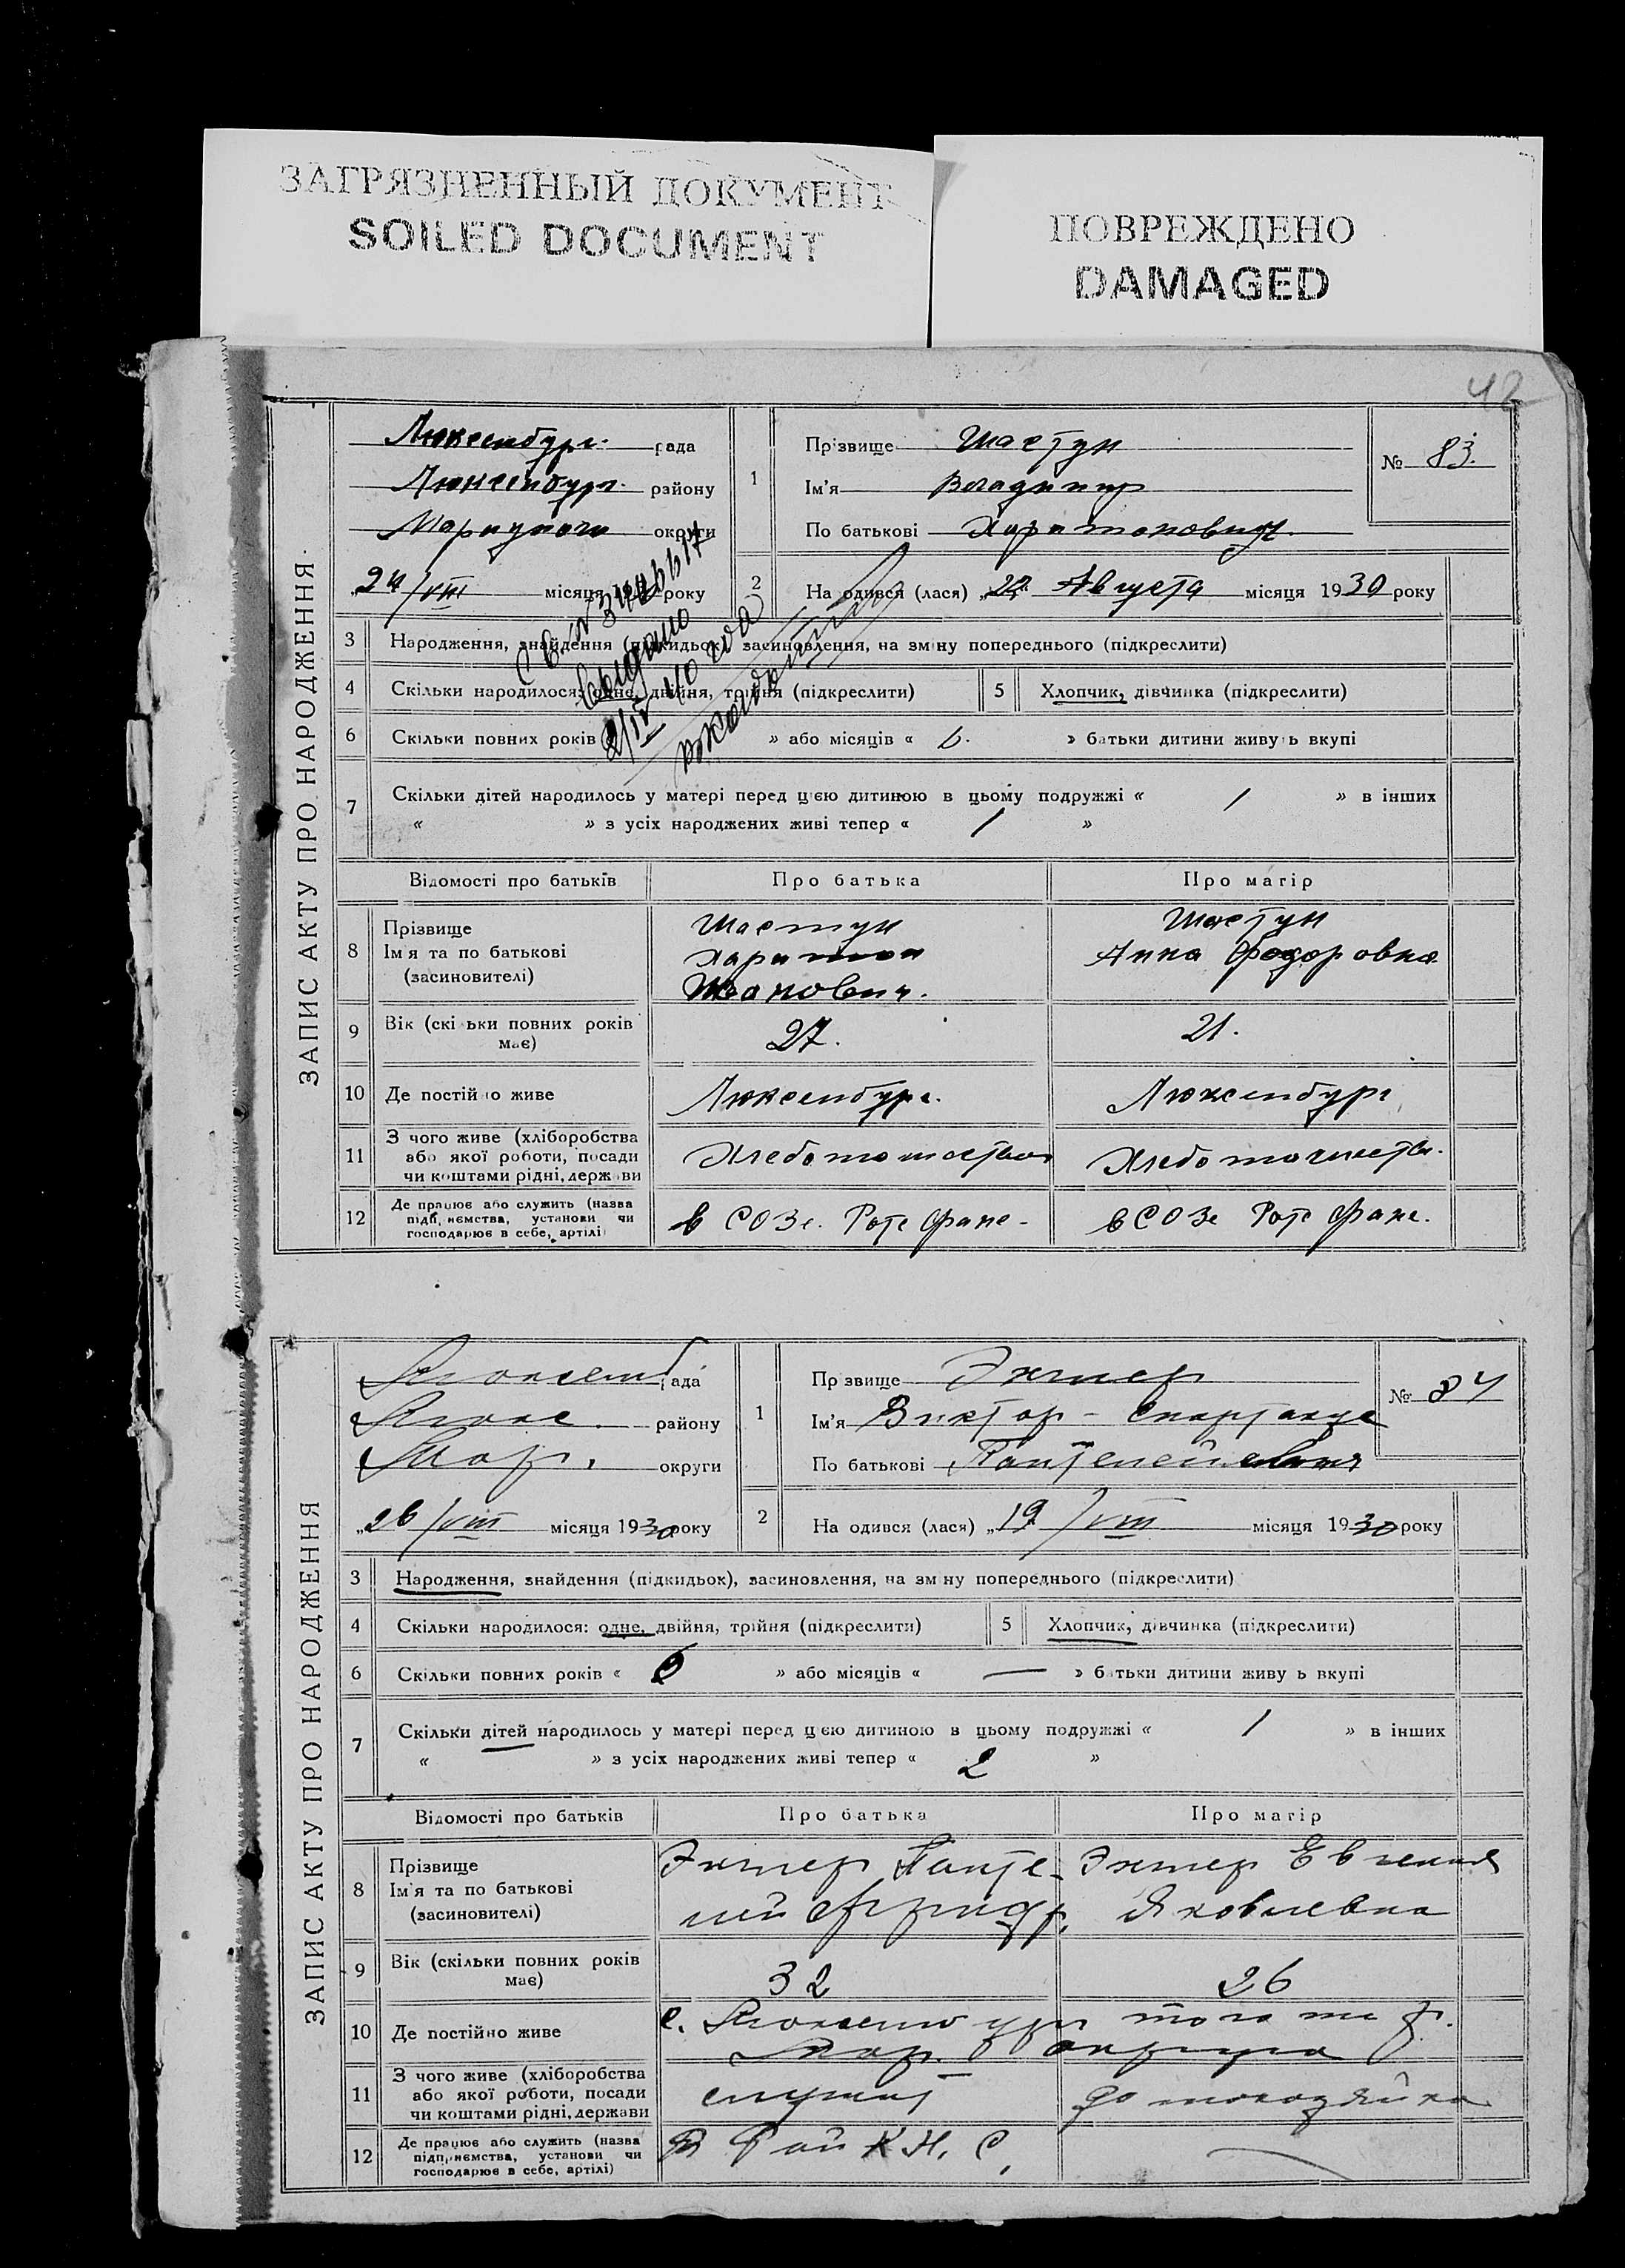 ЗАГРЯЗНЕННЫЙ ДОКУМЕНТ
SOILED DOCUMENT
ПОВРЕЖДЕНО
DAMAGED
42
ЗАПИС АКТУ ПРО НАРОДЖЕННЯ
Люксембург. рада
Люксембург. району
округи
24/VIII місяця року
1
Прізвище Шастун
Ім'я Владимир
По батькові Харитонович.
№ 83.
2 На одився (лася) „22 Августа місяця 1930 року
3 Народження, знайдення (підкидьок), засиновлення, на зміну попереднього (підкреслити)
4 Скільки народилося: одне, двійня, трійня (підкреслити)
5 Хлопчик, дівчинка (підкреслити)
6 Скільки повних років » або місяців « » батьки дитини живуть вкупі
7 Скільки дітей народилось у матері перед цією дитиною в цьому подружжі « 1 » в інших
« » з усіх народжених живі тепер « 1 »
выдано
Відомості про батьків Про батька Про матір
8 Прізвище
Ім'я та по батькові
(засиновителі)
Шастун
Харитон
Иванович.
Шастун
Анна Федоровна
9 Вік (скільки повних років
має)
27. 21.
10 Де постійно живе Люксембург. Люксембург
11 З чого живе (хліборобства
або якої роботи, посади
чи коштами рідні, держави
12 Де працює або служить (назва
підприємства, установи чи
господарює в себе, артілі)
в СОЗе. Роте Фане - в СОЗе Роте Фане.
ЗАПИС АКТУ ПРО НАРОДЖЕННЯ
Люксемб рада
Люкс. району
Мар. округи
„26/VIII місяця 1930 року
1
Прізвище
Ім'я Виктор - Спартакус
По батькові Пантелеймонович
№ 84
2 На одився (лася) „19/VIII місяця 1930 року
3 Народження, знайдення (підкидьок), засиновлення, на зміну попереднього (підкреслити)
4 Скільки народилося: одне, двійня, трійня (підкреслити)
5 Хлопчик, дівчинка (підкреслити)
6 Скільки повних років « » або місяців « — » батьки дитини живу ь вкупі
7 Скільки дітей народилось у матері перед цією дитиною в цьому подружжі « 1 » в інших
« » з усіх народжених живі тепер « 2 »
Відомості про батьків Про батька Про матір
8 Прізвище
Ім'я та по батькові
(засиновителі)
Евгения
Яковлевна
9 Вік (скільки повних років
має)
32 26
10 Де постійно живе
с. Люксембург того же р.
Мар. округа
11 З чого живе (хліборобства
або якої роботи, посади
чи коштами рідні, держави
служит домохозяйка
12 Де працює або служить (назва
підприємства, установи чи
господарює в себе, артілі)
В Рай К.Н.С.